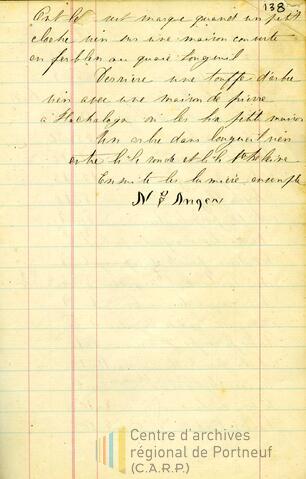 138
Ont le met marque quand un petit
cloche vin sur une maison couverte
en ferblen au quaie Longueuil
Derriere une touffe d'arbre
vin avec une maison de pierre
a Hochelaga vi les six petit maison
Un arbre dans longueuil vien
entre li le ronde et li le
Ensuite les lumière ensemple
N Anger
Centre d'archives
régional de Portneuf
(C.A.R.P.)